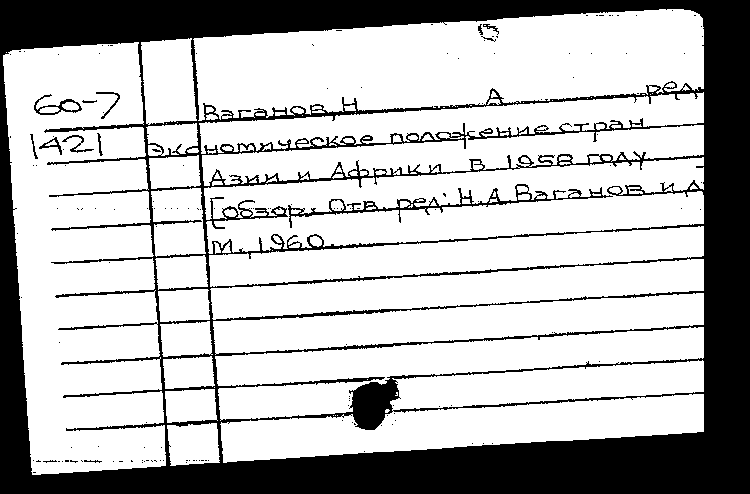 60-7 Ваганов, Н А , ред.
1421 Экономическое положение стран
Азии и Африки в 1958 году
[обзор. Отв. ред: Н.А Ваганов и д
М., 1960.